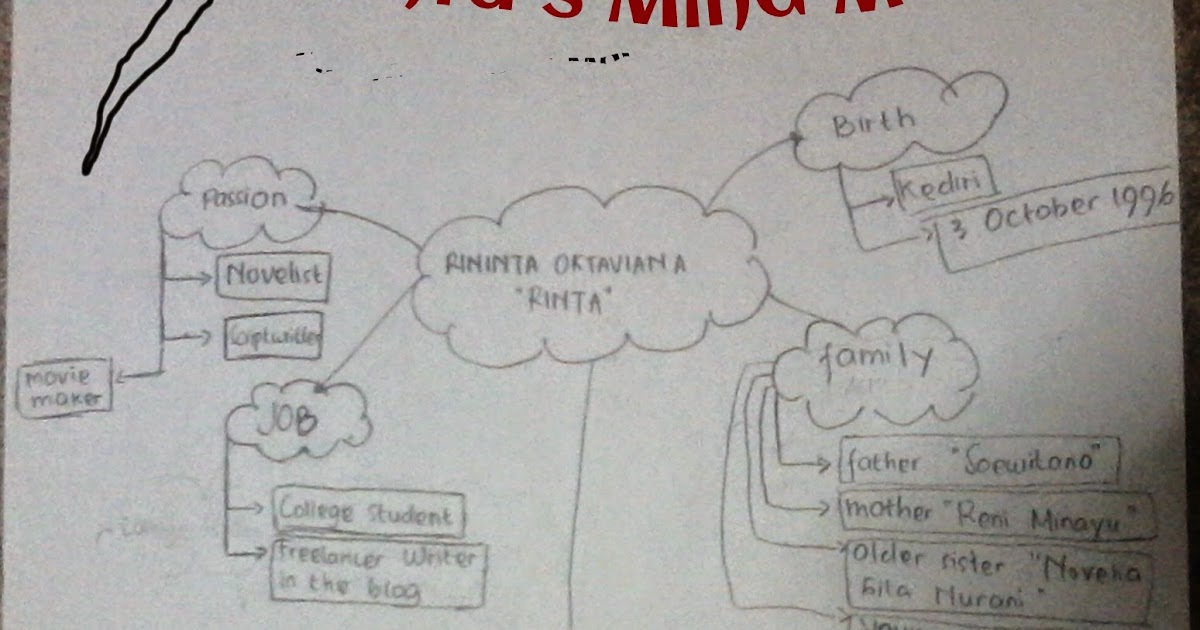 's Mind M
Passion
Novelist
Scriptwriter
movie
maker
JOB
College Student
freelancer Writer
in the blog
RININTA OKTAVIANA
"RINTA"
Birth
Kediri
3 October 1996
family
father "Soewitono"
mother "Reni Minayu"
older sister "Novelia
Nurani"